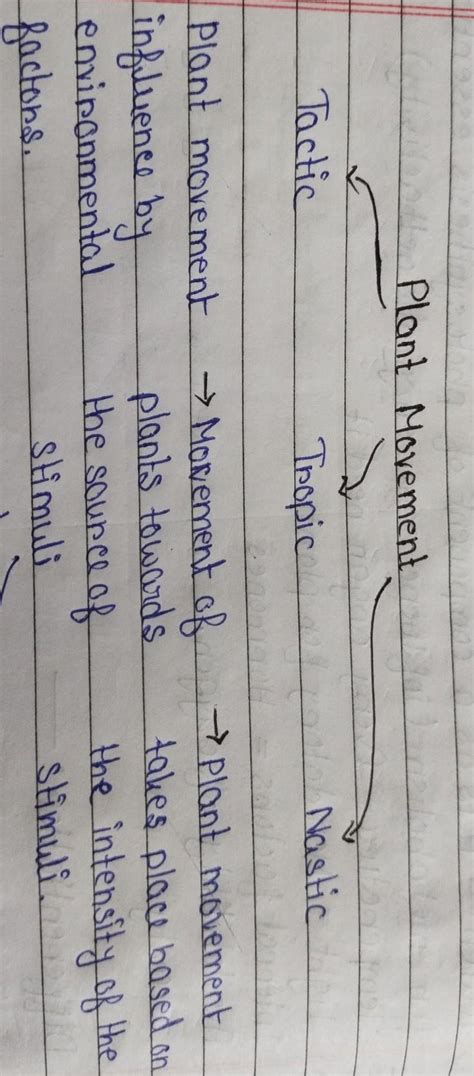 Plant Movement
Tactic Tropic Nastic
Plant movement → Movement of → plant movement
influence by plants towards takes place based on
environmental the source of the intensity of the
factors. stimuli stimuli.